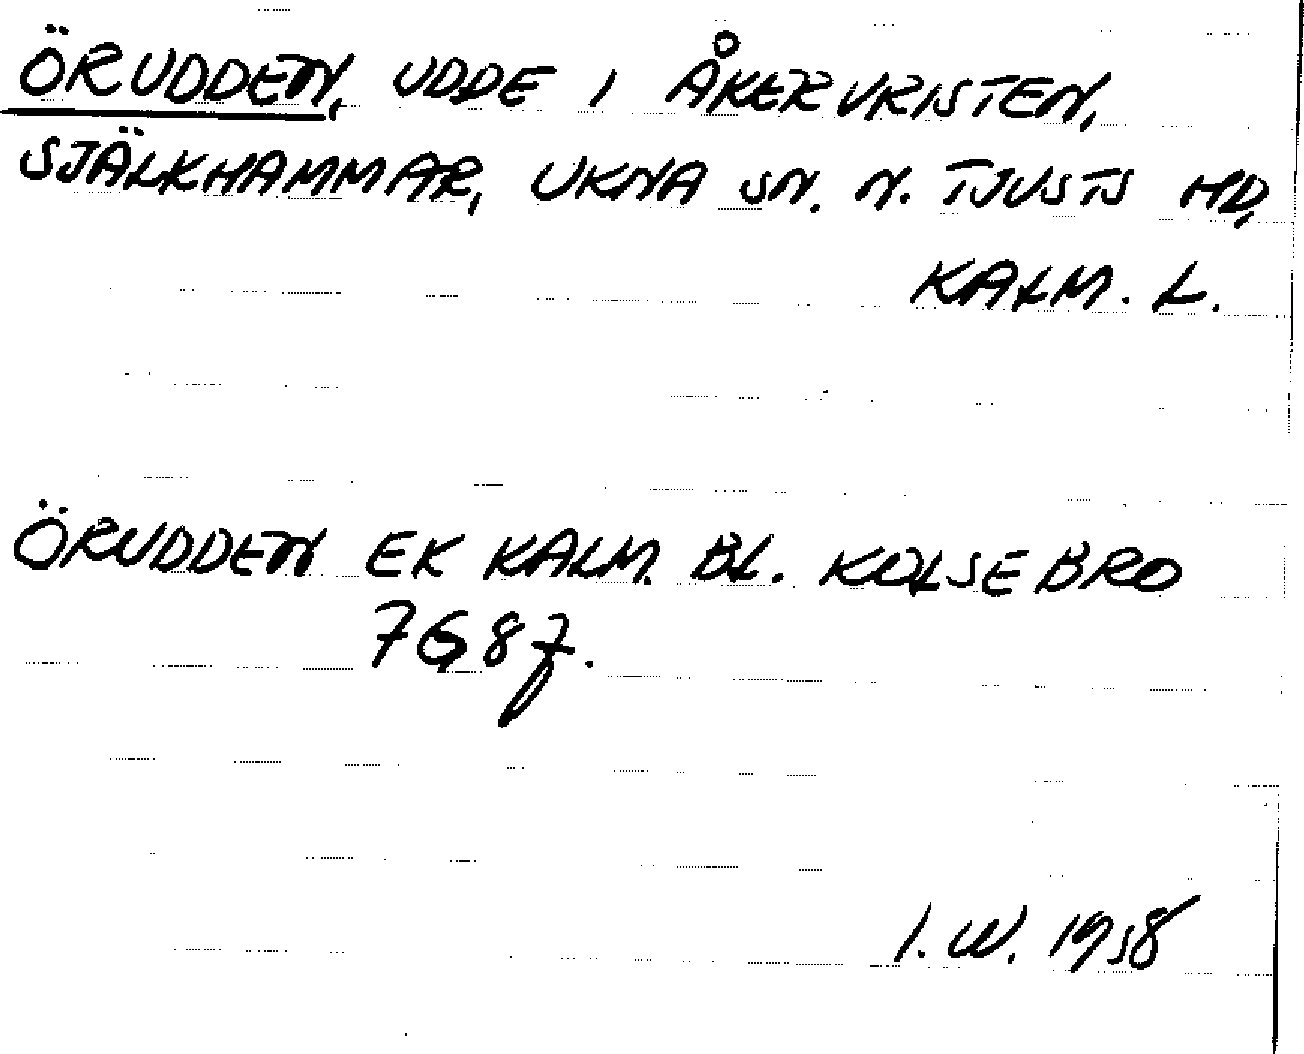 ÖRUDDEN, UDDE I ÅKERVRISTEN,
SJÄLKHAMMAR, UKNA SN. N. TJUSTS HD,
KALM. L.
ÖRUDDEN EK KALM. BL. KOLSEBRO
7687.
I. W. 1958